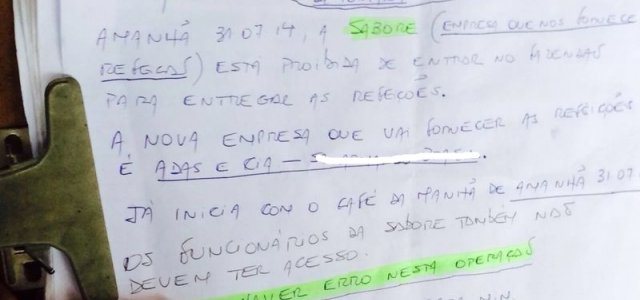 AMANHÃ 31 07 14, A SABORE (EMPRESA QUE NOS FORNECE
REFEICOES) ESTA PROIBIDA DE ENTRAR NO FAZENDAS
PARA ENTREGAR AS REFEICÕES.
A NOVA EMPRESA QUE VAI FORNECER AS REFEIÇÕES
É ADAS E CIA —
JÁ INICIA COM O CAFÉ DA MANHÃ DE AMANHÃ 31 07
OS FUNCIONÁRIOS DA SABORE TAMBÉM NÃO
DEVEM TER ACESSO.
HAVER ERRO NESTA OPERAÇÃO